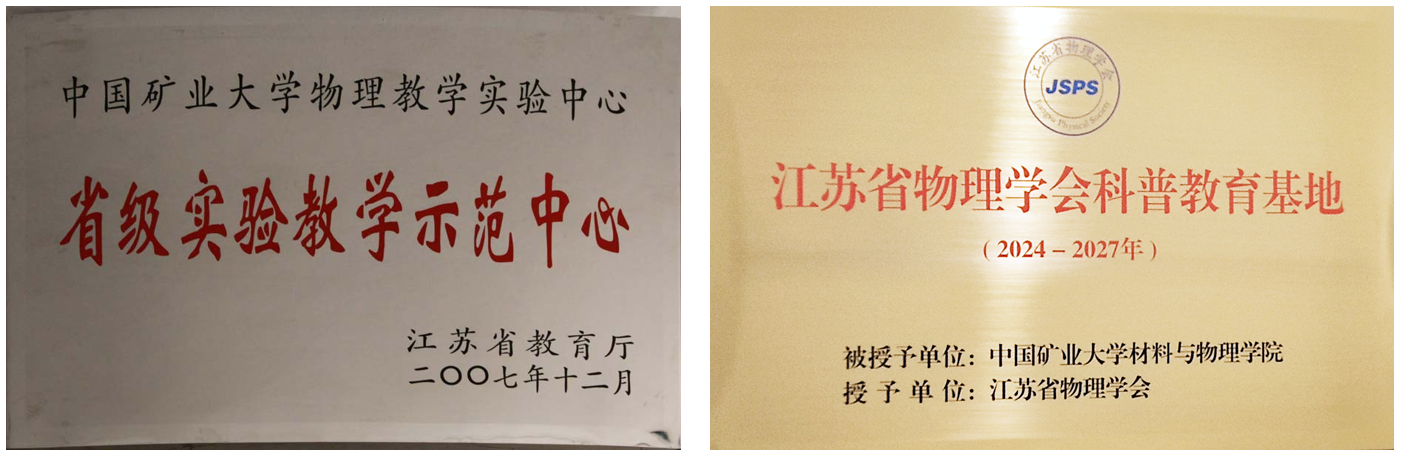 中国矿业大学物理教学实验中心
省级实验教学示范中心
江苏省教育厅
二〇〇七年十二月
江苏省物理学会
JSPS
Jiangsu Physical Society
江苏省物理学会科普教育基地
（2024－2027年）
被授予单位：中国矿业大学材料与物理学院
授予单位：江苏省物理学会